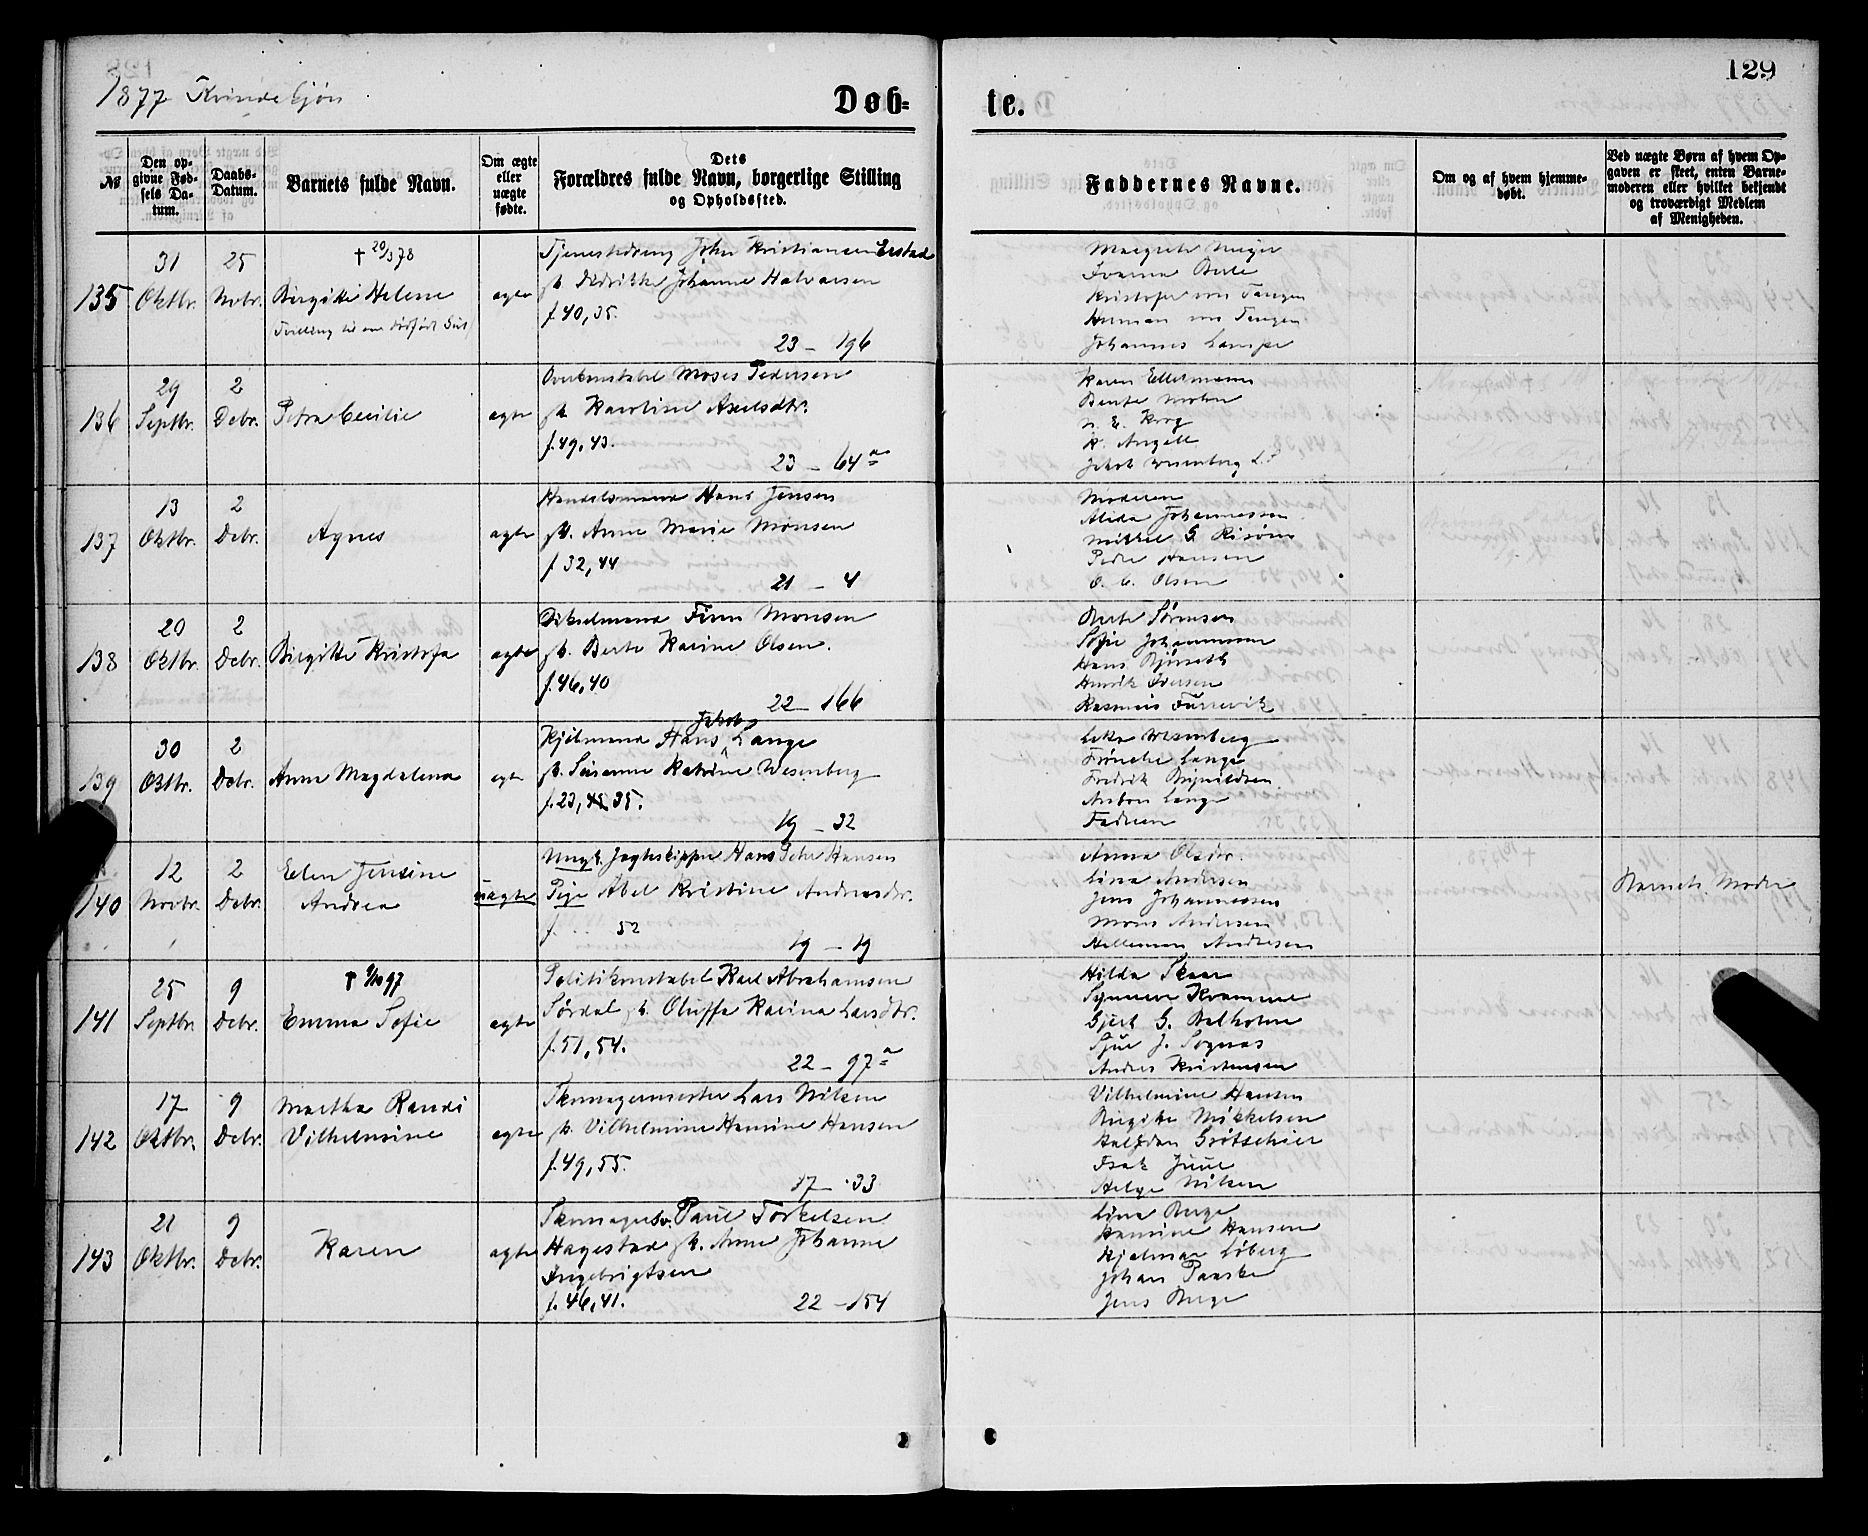 1877 Kvindekjøn
Døb=
te.
129
№
Den opgivne Fødsels Datum.
Daabs-Datum.
Barnets fulde Navn.
Om ægte eller uægte fødte.
Dets
Forældres fulde Navn, borgerlige Stilling
og Opholdssted.
Faddernes Navne.
Om og af hvem hjemmedøbt.
Ved uægte Børn af hvem Opgaven er skeet, enten Barnemoderen eller hvilket bekjendt og troværdigt Medlem af Menigheden.
135
31 Oktbr.
25 Novbr.
† 20/3 78
Birgitte Helene
Tvilling til en dødfødt
ægte
Tjenestedreng John Kristiansen Erstad
Didrikke Johanne Halvorsen
f. 40, 35.
23 - 196
Margrete Meyer
Ivarna Berle
Kristofer von Tangen
Herman von Tangen
Johannes Lampe
136
29 Septbr.
2 Decbr.
Petra Cecilie
ægte
Overkonstabel Moses Pedersen
Karoline Axelsdtr.
f. 49, 43.
23 - 64 a
Karen Ellertsen
Bente Mohn
N. E. Krog
K. Angell
Jakob Wesenberg
137
13 Oktbr.
2 Decbr.
Agnes
ægte
Handelsmand Hans Jensen
Anne Marie Monsen
f 32, 44
21 - 4
Moderen
Alida Johannessen
Mikkel G. Risøen
Peder Hansen
O. C. Olsen
138
20 Oktbr.
2 Decbr.
Birgitte Kristofa
ægte
Finn Monsen
Berte Karine Olsen.
f. 46, 40
22 - 166
Berte Sørensen
Sofie Johannessen
Hans
Henrik Iversen
Rasmus Furrevik
139
30 Oktbr.
2 Decbr.
Anna Magdalena
ægte
Kjølmand Hans Jakob Lange
Susanne Katrine Wesenberg
f. 23, 35.
19 - 32
Wesenberg
Lange
Fredrik
Anton Lange
Faderen
140
12 Novbr.
2 Decbr.
Elen Jensine
Andrea
uægte
Ungk. Jagteskipper Hans Peter Hansen
Pige Abel Kristine Andreasdtr.
f. 52
19 - 19
Anna Olsdtr.
Lina Andersen
Jens Johannessen
Mons Andersen
Andresen
Barnets Moder
141
25 Septbr.
9 Decbr.
† 9/10 97
Emma Sofie
ægte
Politikonstabel Karl Abrahamsen
Sørdal Oluffa Karina Larsdtr.
f. 51, 54.
22 - 97 a
Hilda Skaar
Synneve Kvamme
Gjert G. Balholm
Sjur J. Sognnæs
Anders Kristensen
142
17 Oktbr.
9 Decbr.
Martha Randi
Vilhelmine
ægte
Skomagermester Lars Nilsen
Vilhelmine Hansine Hansen
f. 49, 55.
17 - 33
Vilhelmine Hansen
Birgitte Mikkelsen
Halfdan Grøtscheier
Isak Juul
Helge Nilsen
143
21 Oktbr.
9 Decbr.
Karen
ægte
Skomagersv. Paul Torkelsen
Hagestad Anne Johanne
Ingebrigtsen
f. 46, 41.
22 - 154
Lina Berge
Hansine Hansen
Hjalmar Løberg
Johan Paaske
Jens Berge